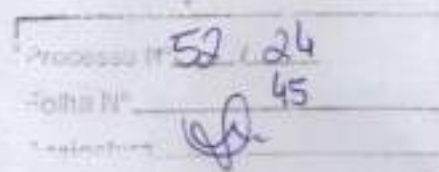 Processo Nº 52 / 24
Folha Nº 45
Assinatura